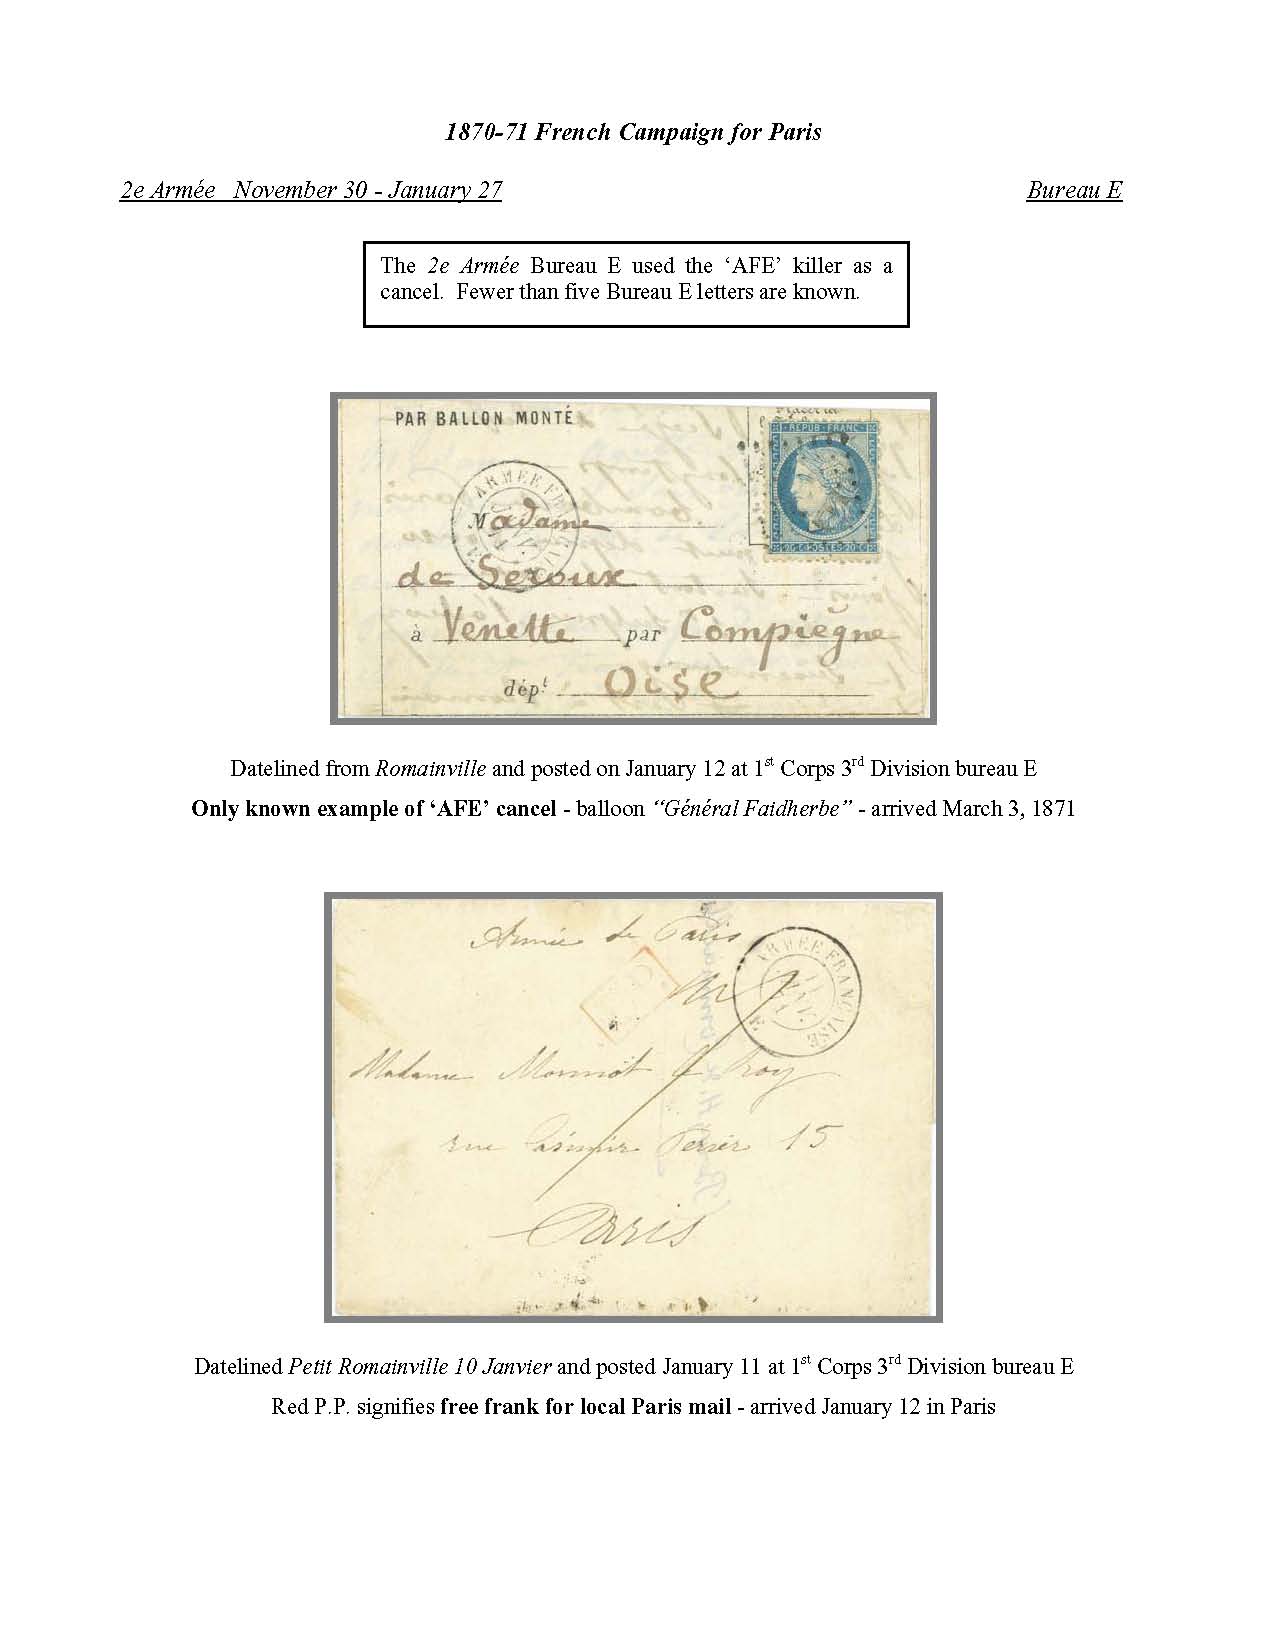 1870-71 French Campaign for Paris
2e Armée November 30 - January 27 Bureau E
The 2e Armée Bureau E used the ‘AFE’ killer as a
cancel. Fewer than five Bureau E letters are known.
PAR BALLON MONTÉ
REPUB. FRANC.
20 C. POSTES 20 C.
ARMÉE FRANÇAISE
Madame
de Seroux
à Venette par Compiègne
Oise
dépt
Datelined from Romainville and posted on January 12 at 1st Corps 3rd Division bureau E
Only known example of ‘AFE’ cancel - balloon “Général Faidherbe” - arrived March 3, 1871
Armée de Paris
ARMÉE FRANÇAISE
E
Madame
rue Casimir Perier 15
Paris
Datelined Petit Romainville 10 Janvier and posted January 11 at 1st Corps 3rd Division bureau E
Red P.P. signifies free frank for local Paris mail - arrived January 12 in Paris